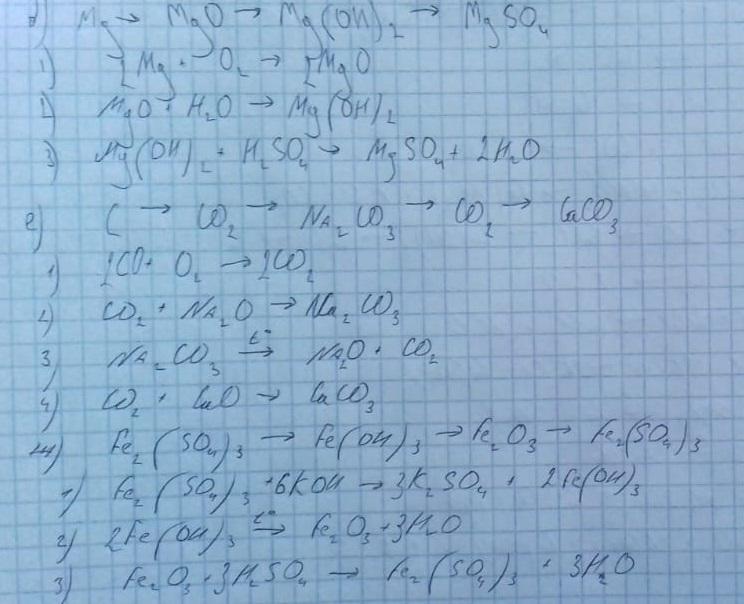 д) Mg → MgO → Mg(OH)₂ → MgSO₄
1) 2Mg + O₂ → 2MgO
2) MgO + H₂O → Mg(OH)₂
3) Mg(OH)₂ + H₂SO₄ → MgSO₄ + 2H₂O
е) C → CO₂ → Na₂CO₃ → CO₂ → CaCO₃
1) 2CO + O₂ → 2CO₂
2) CO₂ + Na₂O → Na₂CO₃
3) Na₂CO₃ t° → Na₂O + CO₂
4) CO₂ + CaO → CaCO₃
ж) Fe₂(SO₄)₃ → Fe(OH)₃ → Fe₂O₃ → Fe₂(SO₄)₃
1) Fe₂(SO₄)₃ + 6KOH → 3K₂SO₄ + 2Fe(OH)₃
2) 2Fe(OH)₃ t° → Fe₂O₃ + 3H₂O
3) Fe₂O₃ + 3H₂SO₄ → Fe₂(SO₄)₃ + 3H₂O